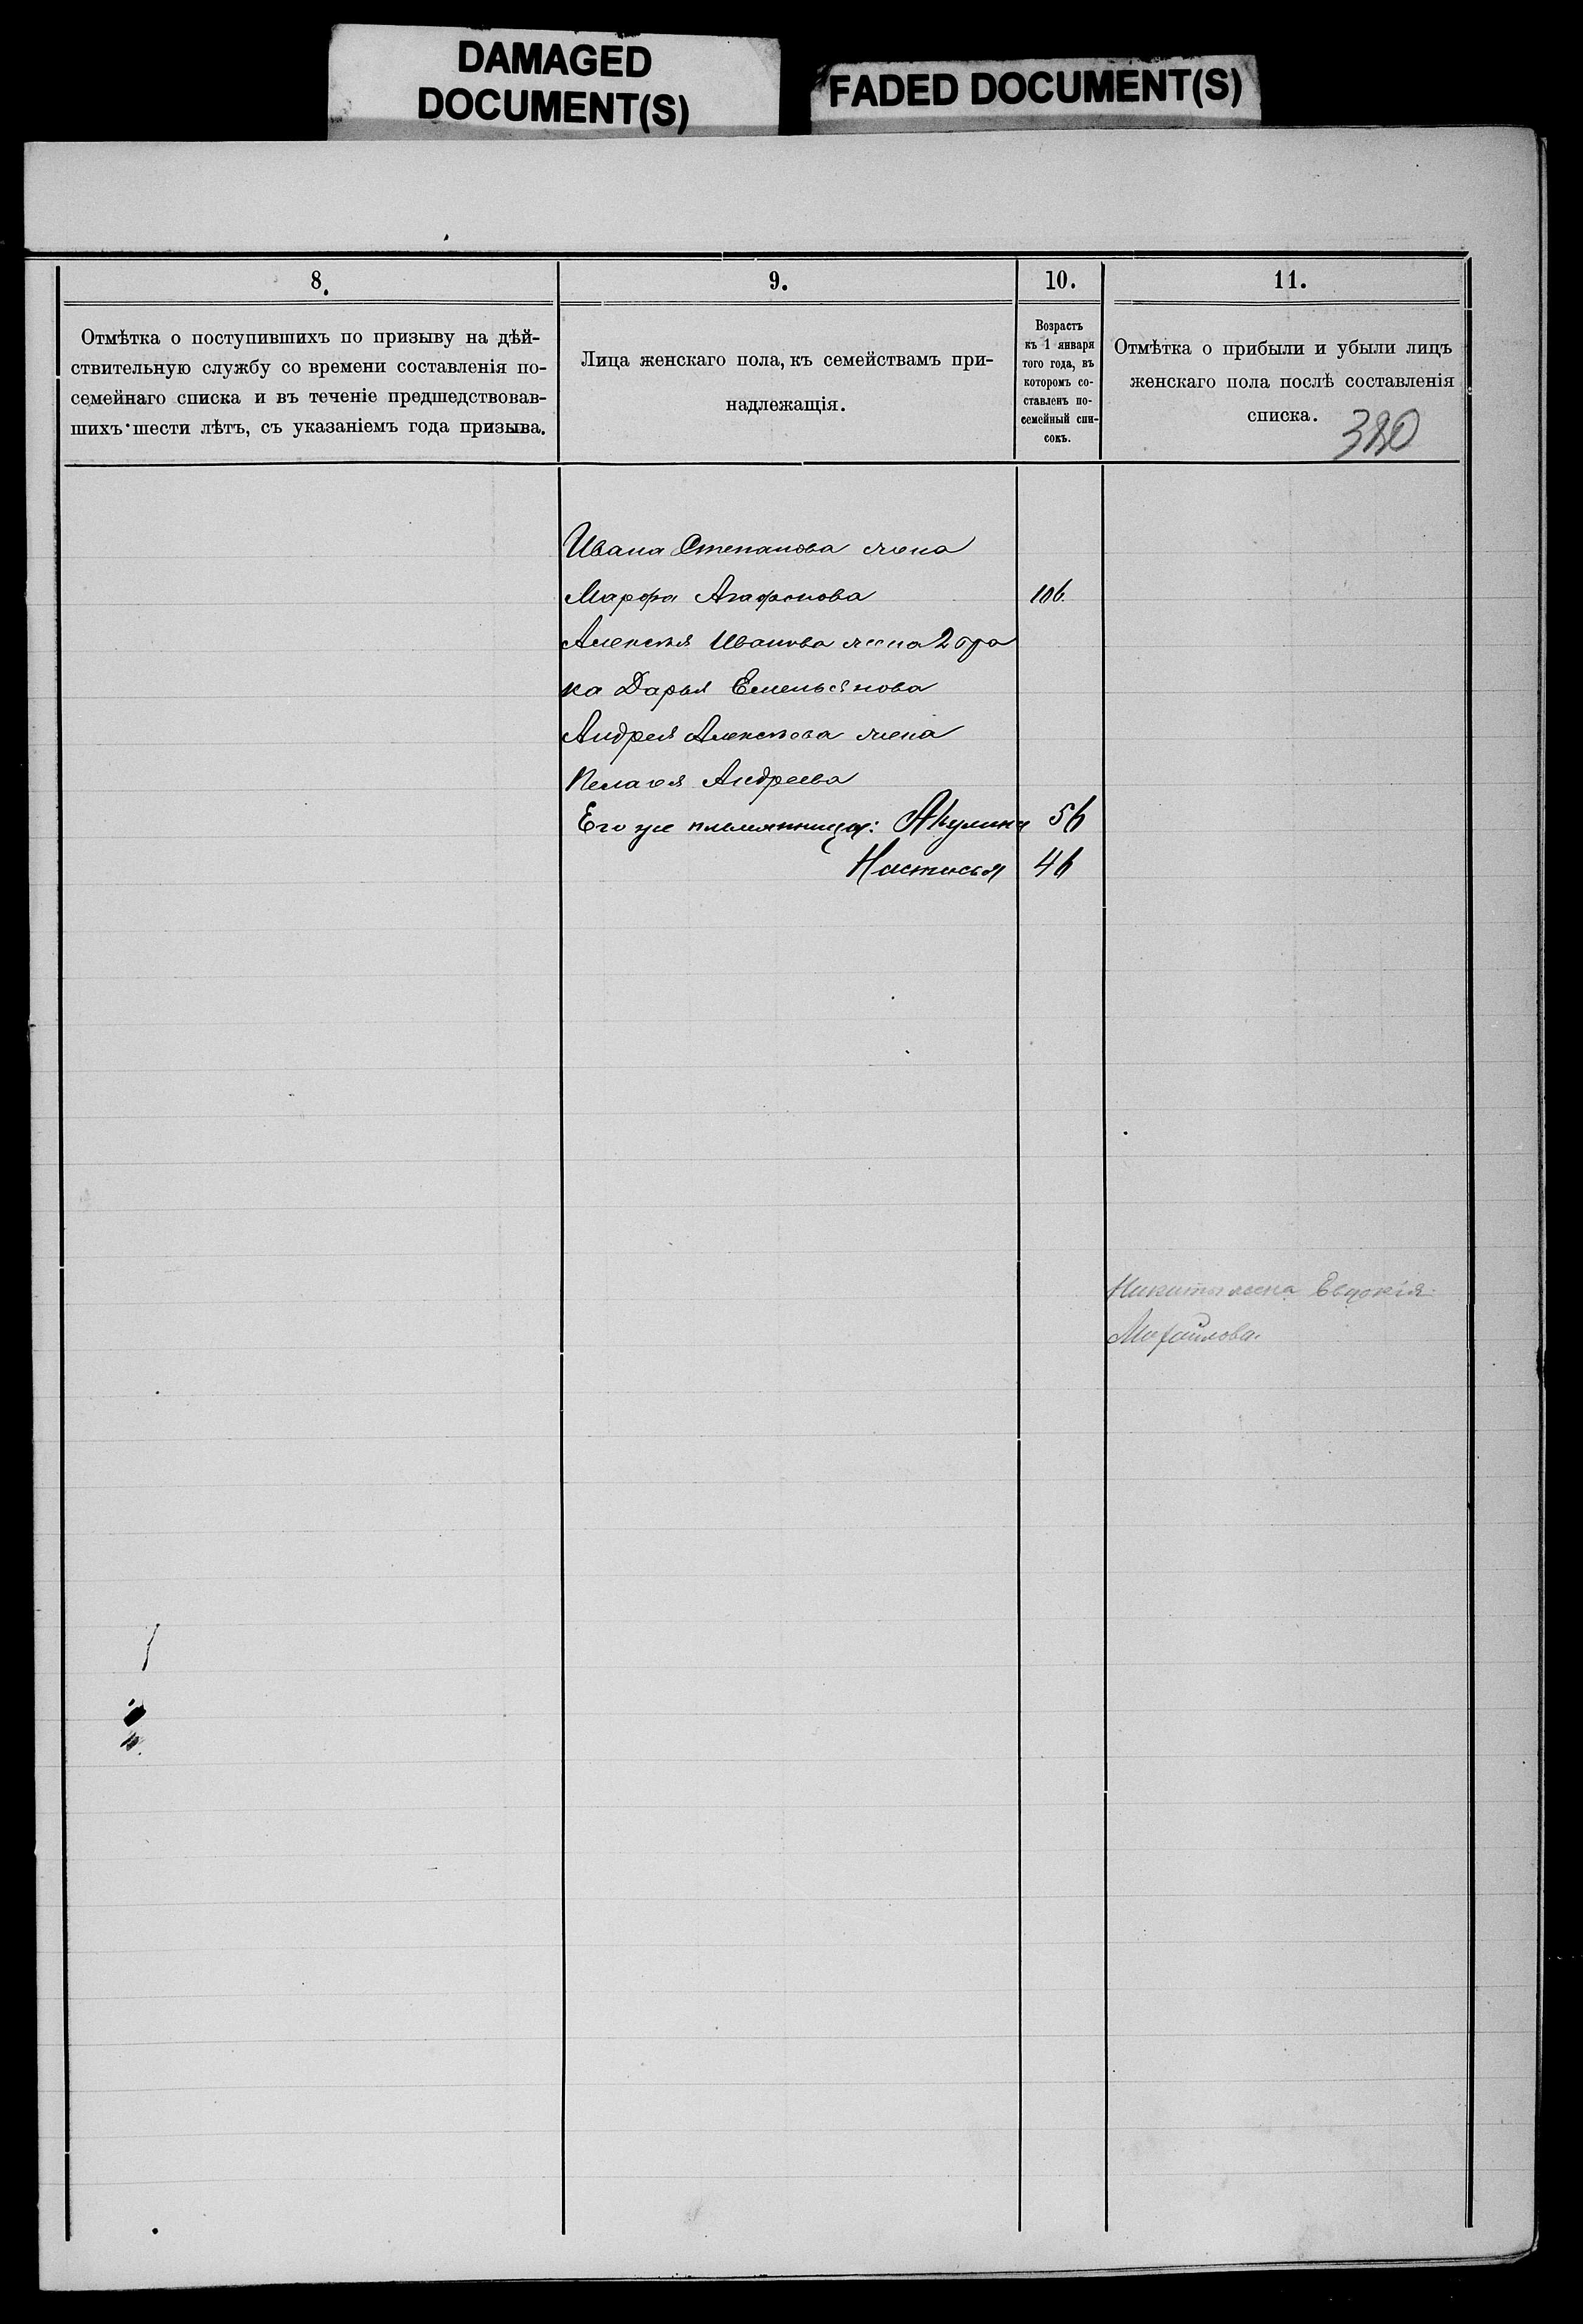 DAMAGED
DOCUMENT(S)
FADED DOCUMENT(S)
8.
Отмѣтка о поступившихъ по призыву на дѣй-
ствительную службу со времени составленія по-
семейнаго списка и въ теченіе предшедствовав-
шихъ шести лѣтъ, съ указаніемъ года призыва.
9.
Лица женскаго пола, къ семействамъ при-
надлежащія.
10.
Возрастъ
къ 1 января
того года, въ
которомъ со-
ставленъ по-
семейный спи-
сокъ.
11.
Отмѣтка о прибыли и убыли лицъ
женскаго пола послѣ составленія
списка.
Ивана Степанова жена
Марфа Агафонова
Алексѣя Иванова жена 2 бра
ка Дарья Емельянова
Андрея Алексѣева жена
Пелагея Андреева
Его же племянницы: Акулина
Настасья
Никиты жена Евдокія
Михайлова.